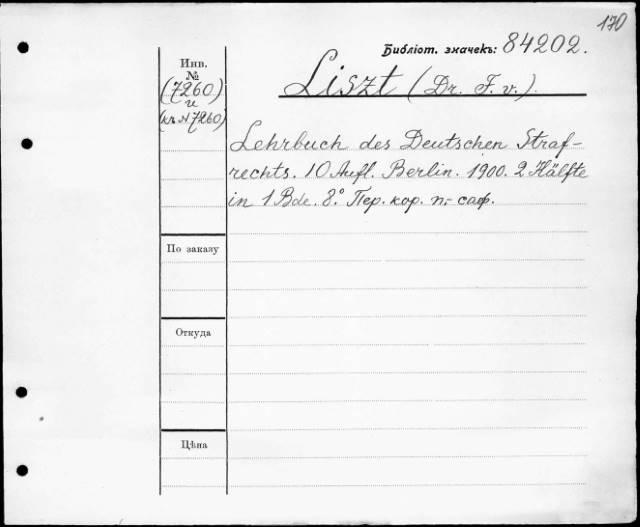 170
Библіот. значекъ: 84202.
Инв.
№
(7260)
и
(къ №7260)
Liszt (Dr. F. v.).
Lehrbuch des Deutschen Straf-
rechts. 10 Aufl. Berlin. 1900. 2 Hälfte
in 1 Bde. 8° Пер. кор. п.- саф.
По заказу
Откуда
Цѣна